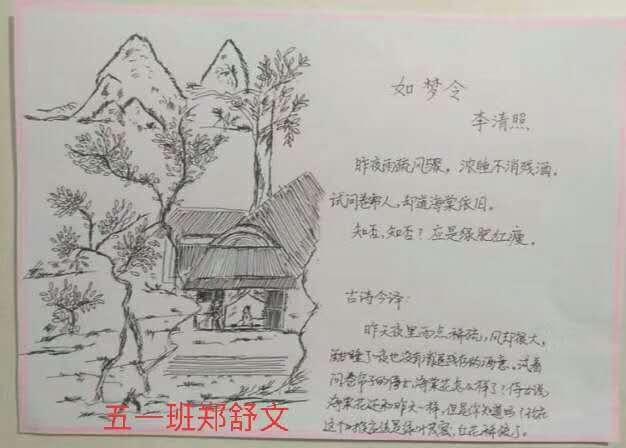 如梦令
李清照
昨夜雨疏风骤,浓睡不消残酒。
试问卷帘人,却道海棠依旧。
知否,知否?应是绿肥红瘦。
古诗今译:
昨天夜里雨点稀疏,风却很大,
睡了一夜也没有消退残存的酒意。试着
问卷帘子的侍女,海棠花怎么样了?侍女说
海棠花还和昨天一样,但是你知道吗?现在
这个应该是绿叶茂密,红花稀疏了。
五一班郑舒文